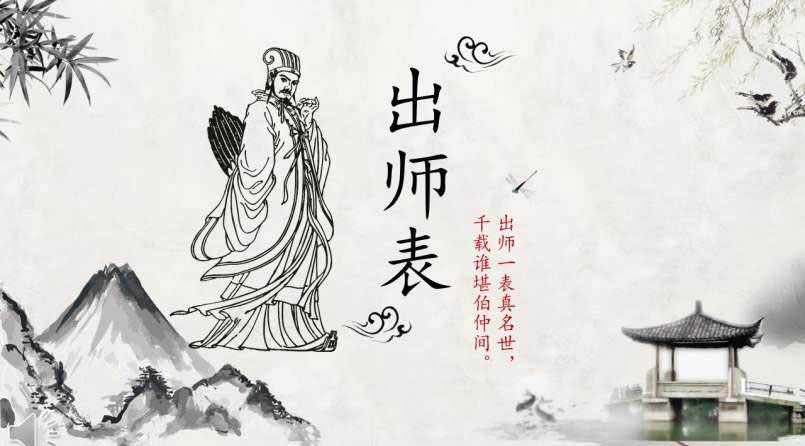 出师表
出师一表真名世，
千载谁堪伯仲间。